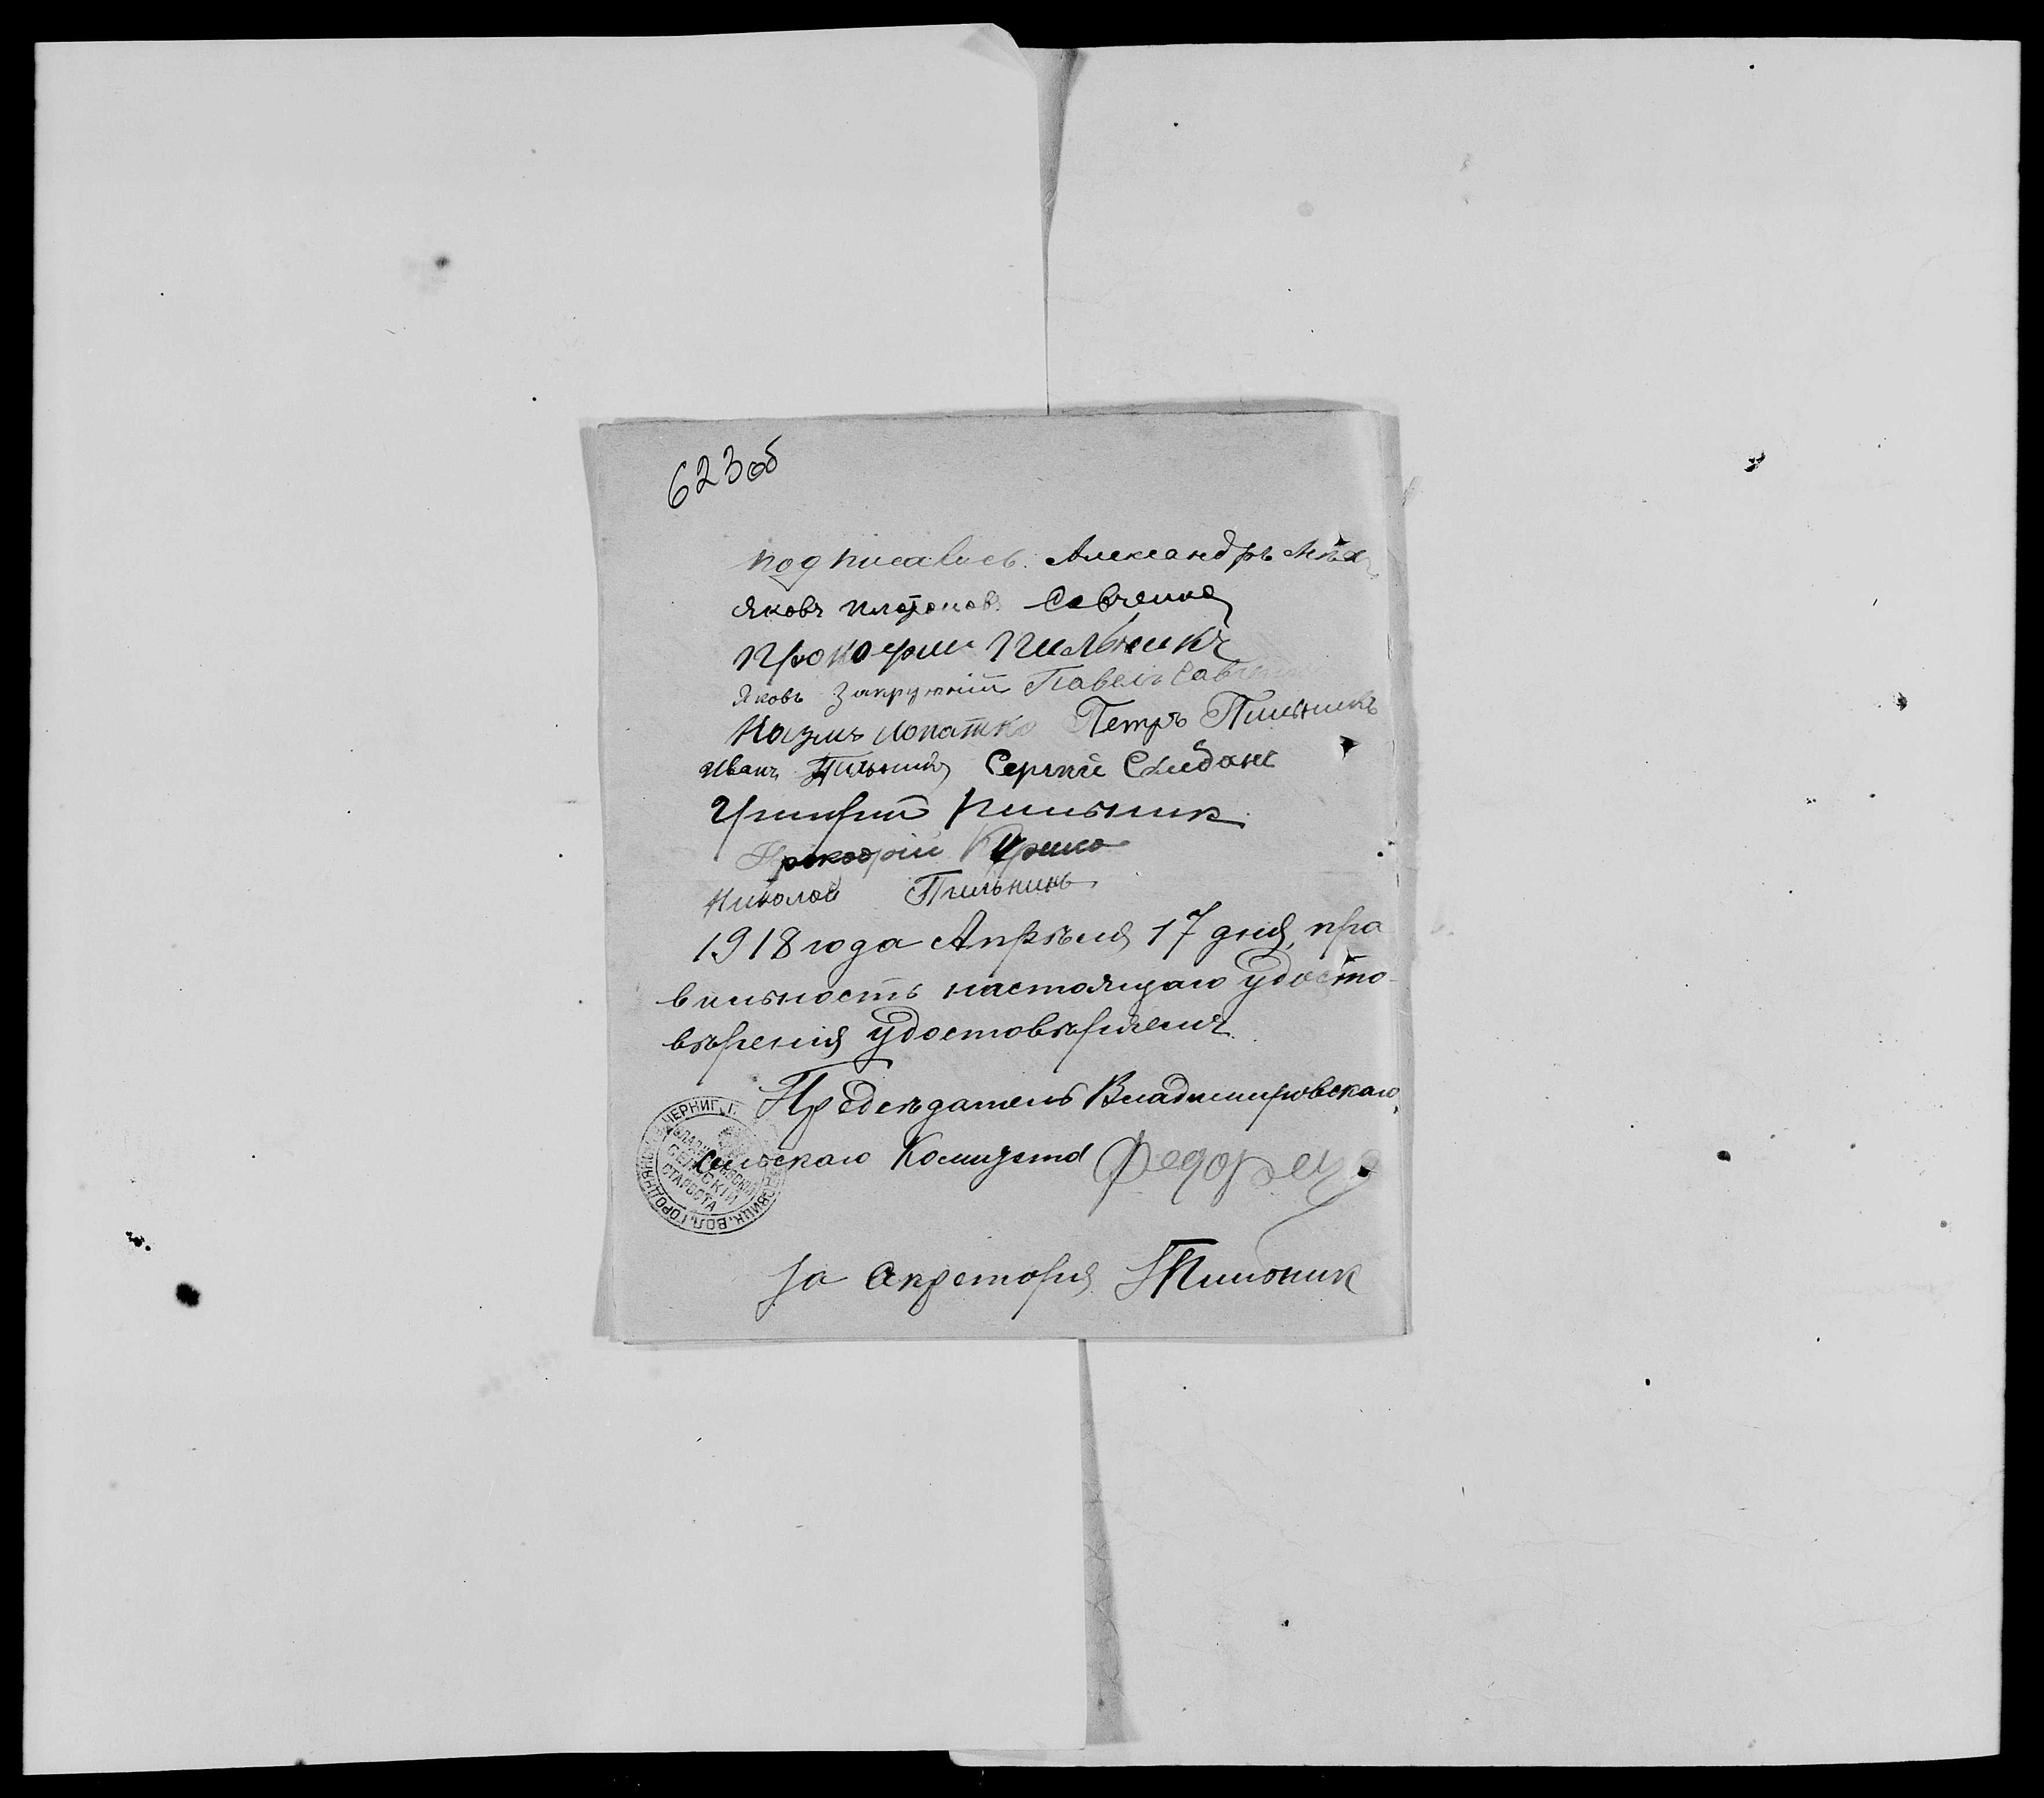 623об
подписались. Александръ
Яковъ Платоновъ Савченко
Прокофии Пильникъ
Яковъ Закружнiй Павелъ Савченко
Козма Лопатко Петръ Пильникъ
Иванъ Пильникъ Сергiй Скибане
Григорiй Пильник
Прокофiй Курико
Николай Пильникъ
1918 года Апрѣля 17 дня, пра
вильность настоящаго удосто-
вѣренiя удостовѣряемъ
Председатель Владимировскаго
сельскаго Комитета Федорец
за секретаря Пильник
ЧЕРНИГ. Г. ГОРОДНЯНСК. ВИЦК. ВОЛ.
ВЛАДИМИРОВСКIЙ
СЕЛЬСКIЙ
СТАРОСТА